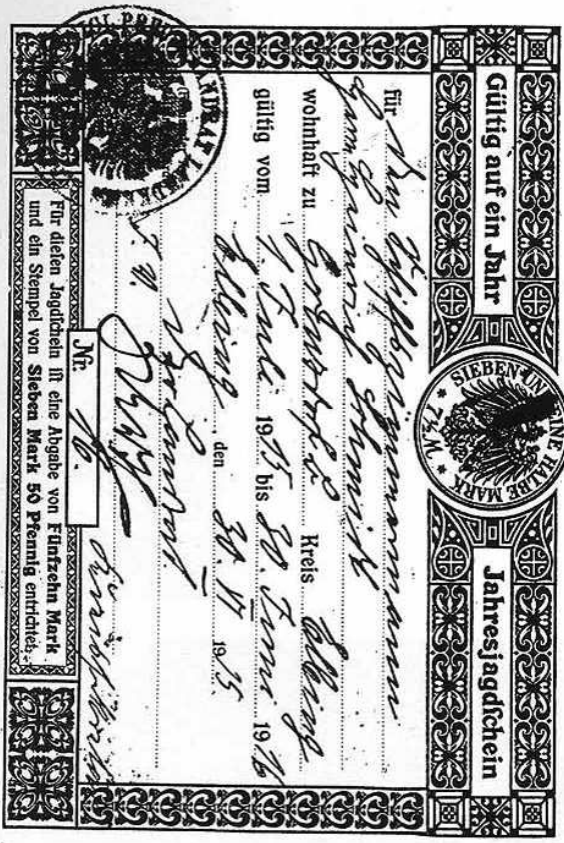 Gültig auf ein Jahr
SIEBEN UN EINE HALBE MARK * 7½ M. *
Jahresjagdſchein
für den
Herrn Schmidt
wohnhaft zu Kreis Elbing
gültig vom 1. Juli 1915 bis 30. Juni 1916
Elbing, den 30. VI 1915.
Der Landrat
J. V.
Nr. 16.
Kreissekretär
Für dieſen Jagdſchein iſt eine Abgabe von Fünfzehn Mark
und ein Stempel von Sieben Mark 50 Pfennig entrichtet.
KGL. PREUSS. LANDRAT LANDKR